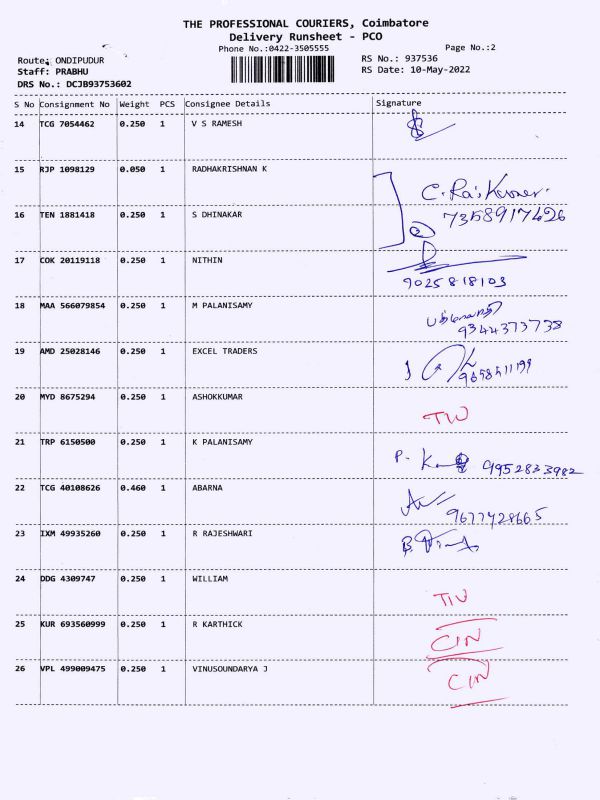 THE PROFESSIONAL COURIERS, Coimbatore
Delivery Runsheet - PCO
Phone No.:0422-3505555
Page No.:2
Route: ONDIPUDUR
RS No.: 937536
Staff: PRABHU
RS Date: 10-May-2022
DRS No.: DCJB93753602
S No Consignment No Weight PCS Consignee Details Signature
14 TCG 7054462 0.250 1 V S RAMESH
15 RJP 1098129 0.050 1 RADHAKRISHNAN K
C. Rajkumar.
16 TEN 1881418 0.250 1 S DHINAKAR 7358917426
17 COK 20119118 0.250 1 NITHIN
9025818103
18 MAA 566079854 0.250 1 M PALANISAMY
9344373738
19 AMD 25028146 0.250 1 EXCEL TRADERS
9658511199
20 MYD 8675294 0.250 1 ASHOKKUMAR
TIU
21 TRP 6150500 0.250 1 K PALANISAMY
P. 9952833982
22 TCG 40108626 0.460 1 ABARNA
9677428665
23 IXM 49935260 0.250 1 R RAJESHWARI
24 DDG 4309747 0.250 1 WILLIAM
TIU
25 KUR 693560999 0.250 1 R KARTHICK
CIN
26 VPL 499009475 0.250 1 VINUSOUNDARYA J
CIN